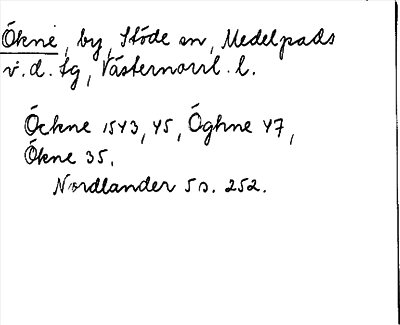 Ökne, by, Stöde sn, Medelpads
v. d. tg, Västernorrl. l.
Öckne 1543, 45, Öghne 47,
Ökne 35.
Nordlander 5 s. 252.